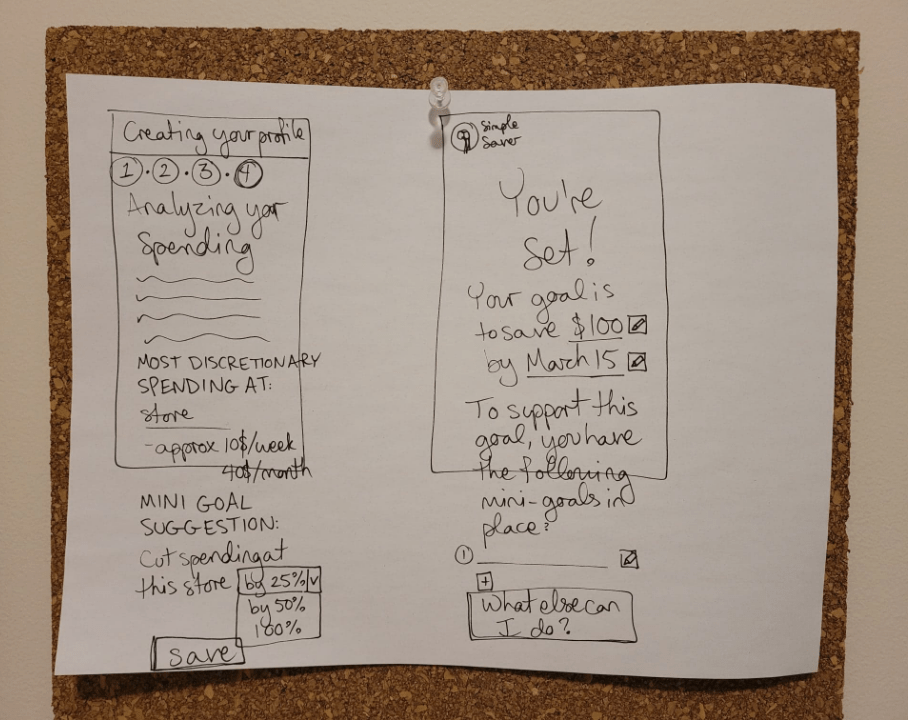 Creating your profile
1 · 2 · 3 · 4
Analyzing your
Spending
MOST DISCRETIONARY
SPENDING AT:
store
- approx 10$/week
40$/month
MINI GOAL
SUGGESTION:
Cut spending at
this store by 25% v
by 50%
100%
save
Simple
Saver
You're
Set!
Your goal is
to save $100
by March 15
To support this
goal, you have
the following
mini-goals in
place:
1
+
What else can
I do?